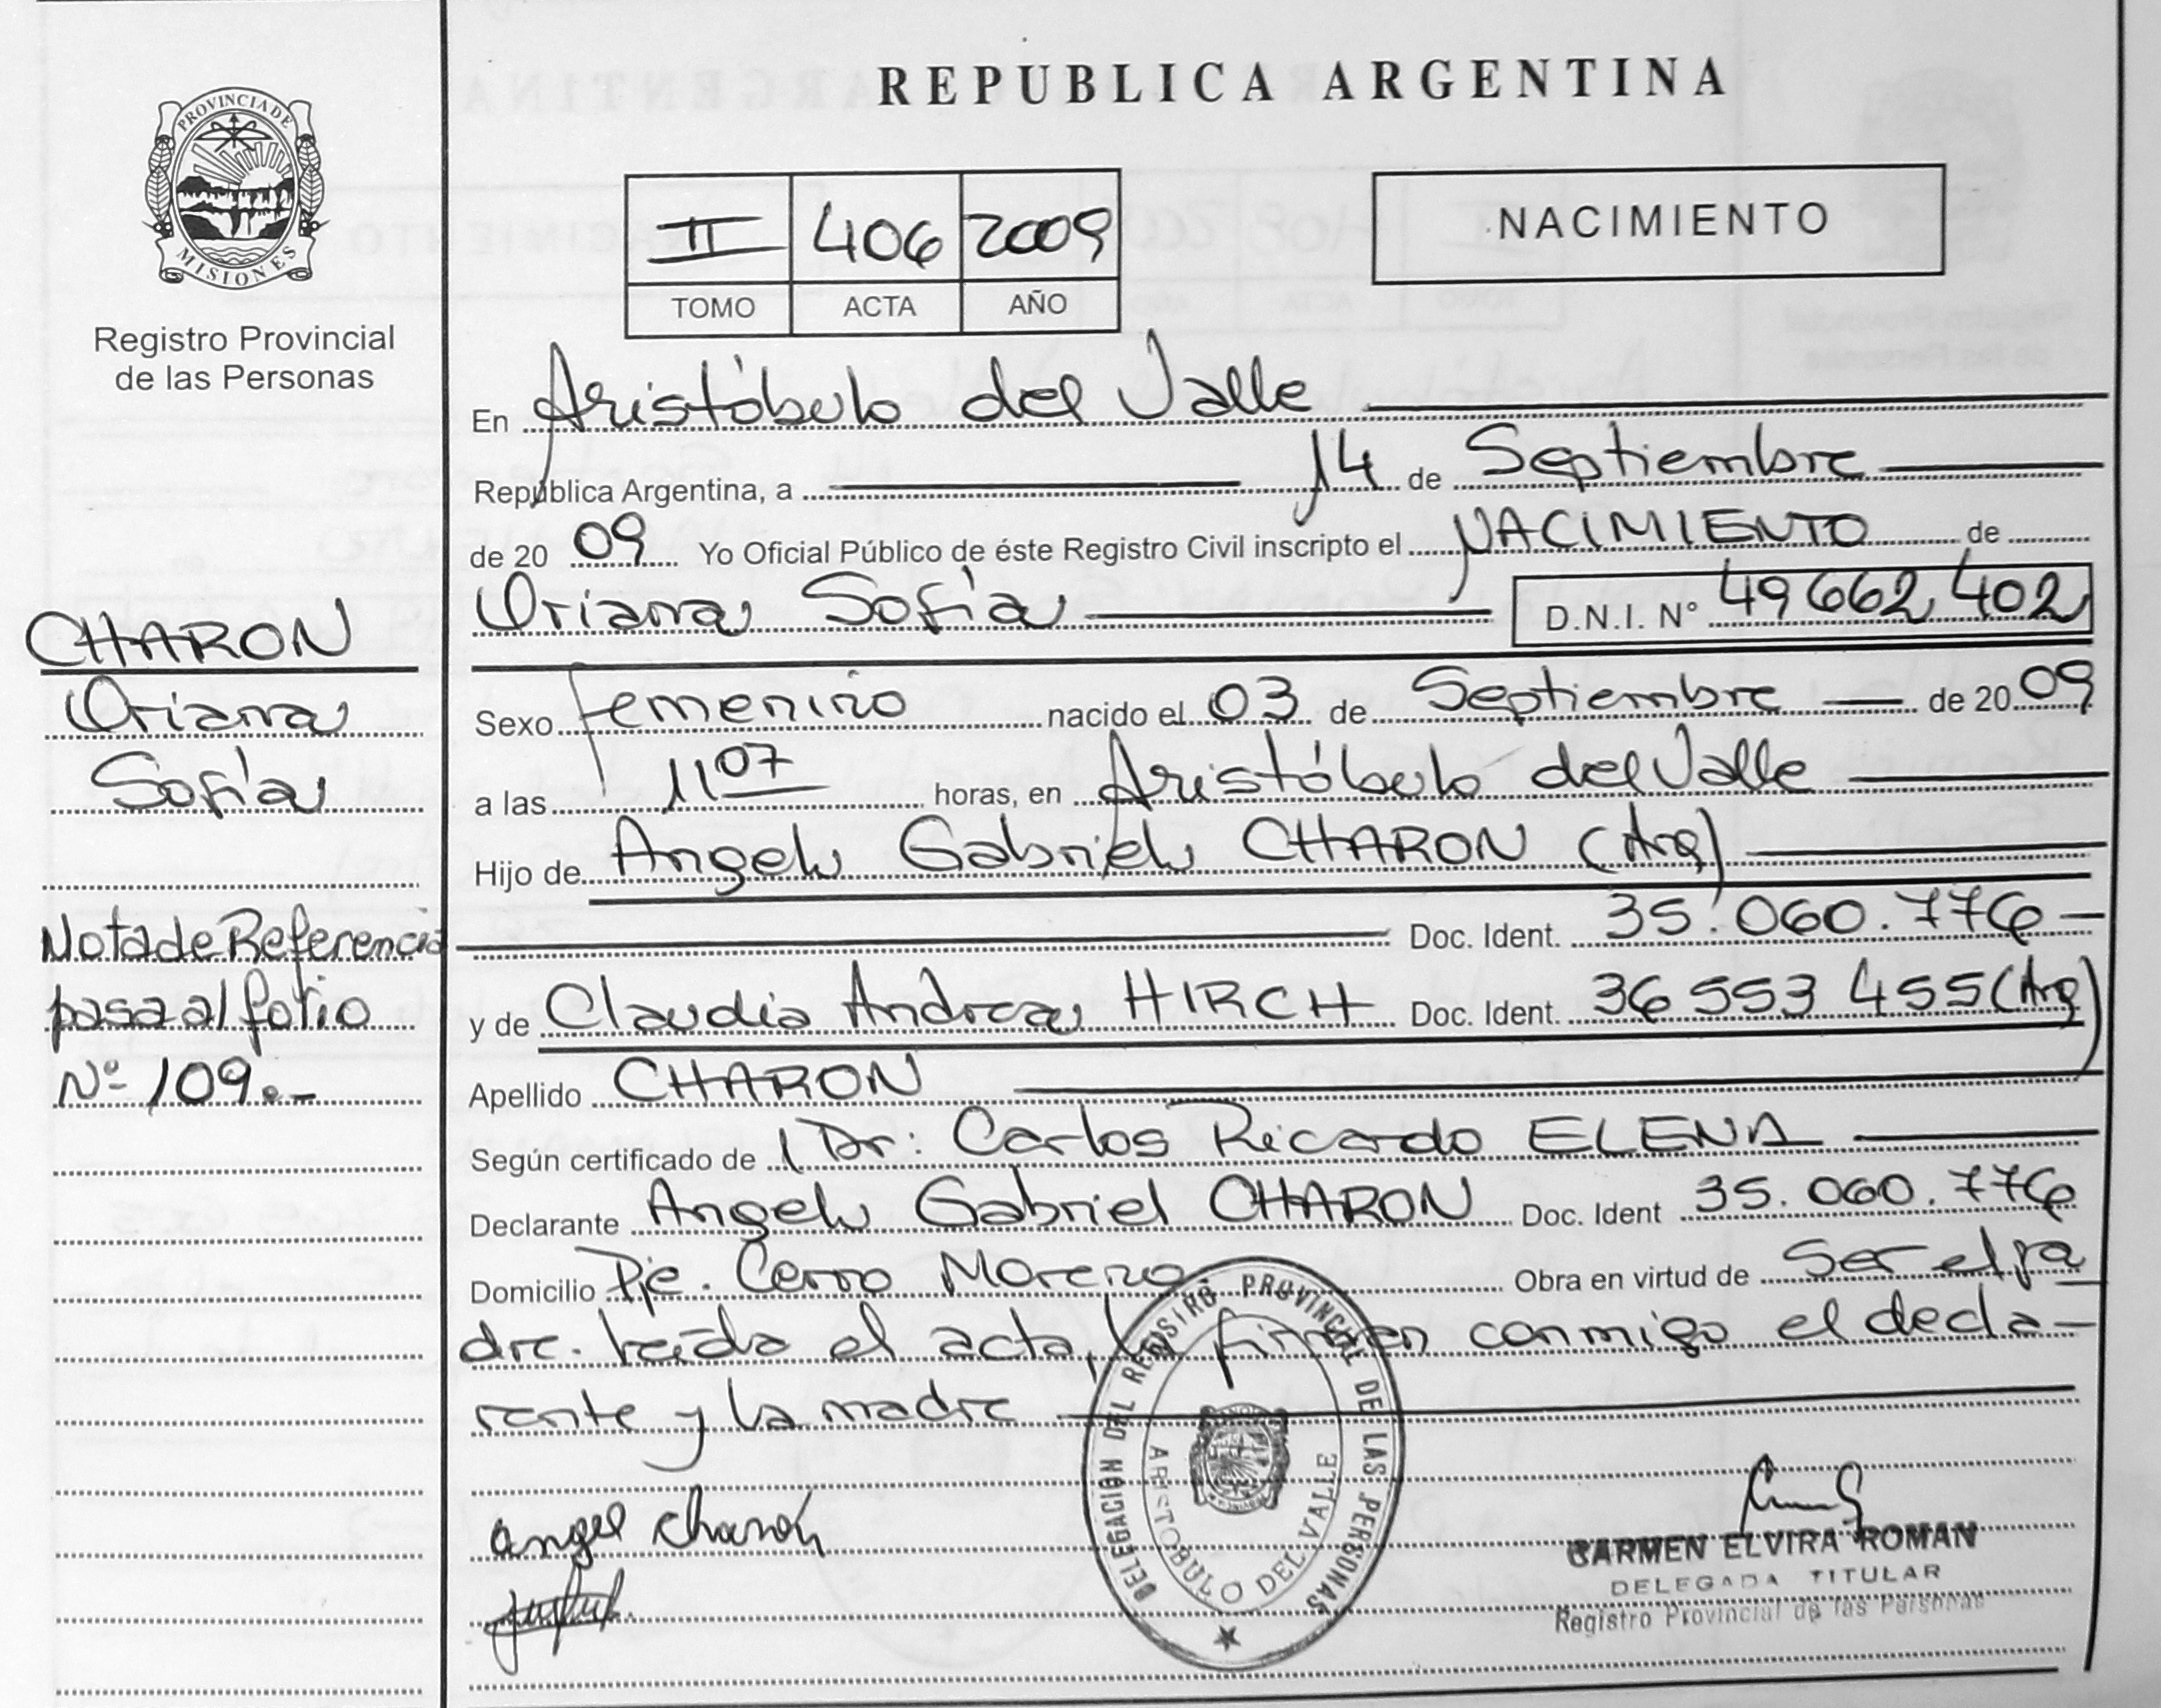 REPUBLICA ARGENTINA
PROVINCIA DE
MISIONES
Registro Provincial
de las Personas
II 406 2009
TOMO ACTA AÑO
NACIMIENTO
En Aristóbulo del Valle
República Argentina, a 14 de Septiembre
de 20 09 Yo Oficial Público de éste Registro Civil inscripto el NACIMIENTO de
Oriana Sofía D.N.I. N° 49 662 402
CHARON
Oriana
Sofía
Nota de Referencia
pasa al folio
Nº 109.-
Sexo femenino nacido el 03 de Septiembre de 20 09
a las 11 07 horas, en Aristóbulo del Valle
Hijo de Angel Gabriel CHARON (Arg)
Doc. Ident. 35.060.776
y de Claudia Andrea HIRCH Doc. Ident. 36 553 455 (Arg)
Apellido CHARON
Según certificado de Dr: Carlos Ricardo ELENA
Declarante Angel Gabriel CHARON Doc. Ident 35.060.776
Domicilio Pje. Cerro Moreno Obra en virtud de Ser el pa
dre. Leída el acta, la firman conmigo el decla-
rante y la madre
DELEGACIÓN DEL REGISTRO PROVINCIAL DE LAS PERSONAS
ARISTOBULO DEL VALLE
angel charon
CARMEN ELVIRA ROMAN
DELEGADA TITULAR
Registro Provincial de las Personas